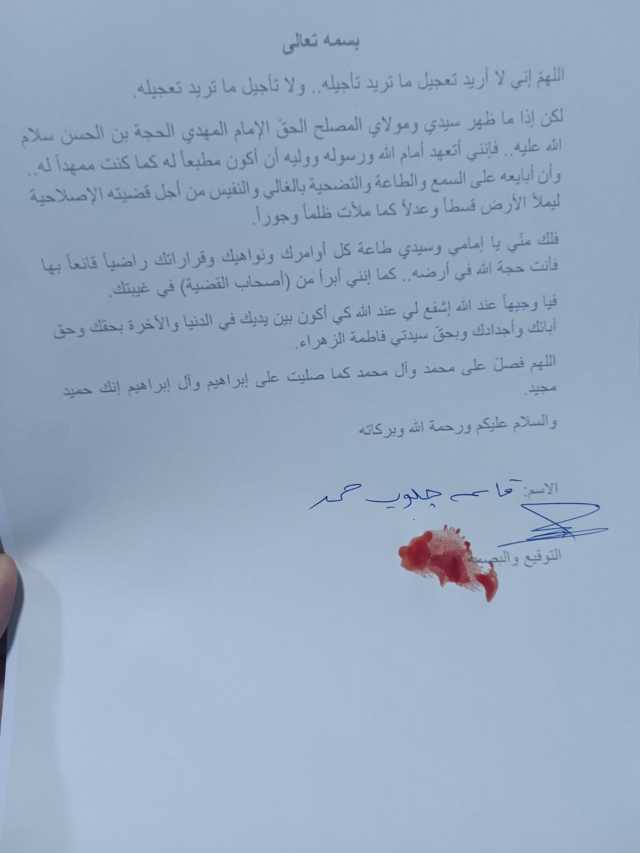 بسمه تعالى
اللهمّ إني لا أريد تعجيل ما تريد تأجيله.. ولا تأجيل ما تريد تعجيله.
لكن إذا ما ظهر سيدي ومولاي المصلح الحقّ الإمام المهدي الحجة بن الحسن سلام
الله عليه.. فإنني أتعهد أمام الله ورسوله ووليه أن أكون مطيعاً له كما كنت ممهداً له..
وأن أبايعه على السمع والطاعة والتضحية بالغالي والنفيس من أجل قضيته الإصلاحية
ليملأ الأرض قسطاً وعدلاً كما ملأت ظلماً وجوراً.
فلك منّي يا إمامي وسيدي طاعة كل أوامرك ونواهيك وقراراتك راضياً قانعاً بها
فأنت حجة الله في أرضه.. كما إنني أبرأ من (أصحاب القضية) في غيبتك.
فيا وجيهاً عند الله إشفع لي عند الله كي أكون بين يديك في الدنيا والآخرة بحقك وحق
آبائك وأجدادك وبحقّ سيدتي فاطمة الزهراء.
اللهم فصلّ على محمد وآل محمد كما صليت على إبراهيم وآل إبراهيم إنك حميد
مجيد.
والسلام عليكم ورحمة الله وبركاته
الاسم: قاسم چلوب حمد
التوقيع والبصمة